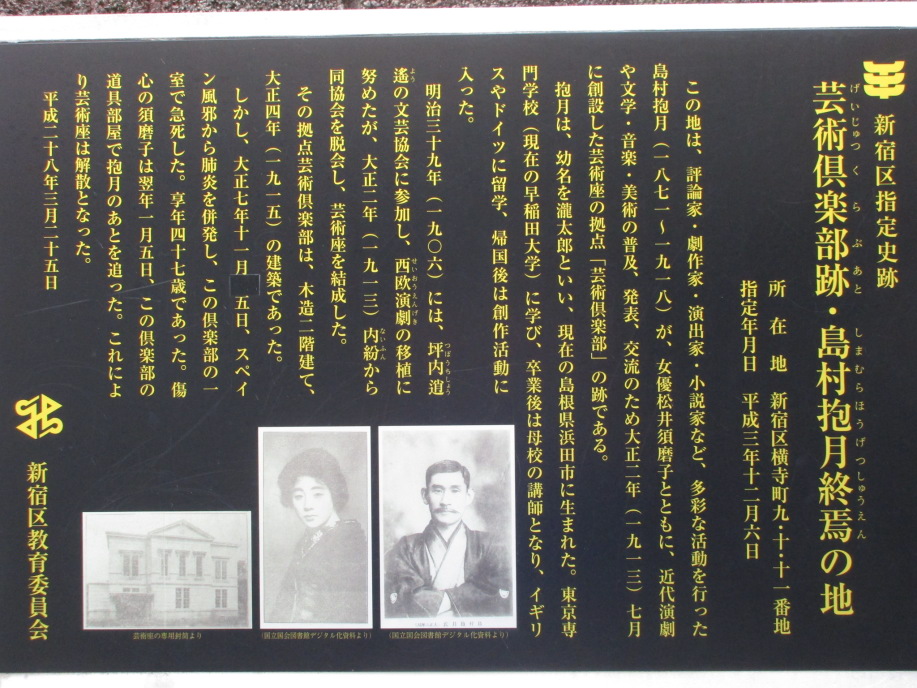 新宿区指定史跡
芸術倶楽部跡・島村抱月終焉の地
げいじゅつくらぶあと しまむらほうげつしゅうえん
所在地 新宿区横寺町九・十・十一番地
指定年月日 平成三年十二月六日
この地は、評論家・劇作家・演出家・小説家など、多彩な活動を行った
島村抱月（一八七一～一九一八）が、女優松井須磨子とともに、近代演劇
や文学・音楽・美術の普及、発表、交流のため大正二年（一九一三）七月
に創設した芸術座の拠点「芸術倶楽部」の跡である。
抱月は、幼名を瀧太郎といい、現在の島根県浜田市に生まれた。東京専
門学校（現在の早稲田大学）に学び、卒業後は母校の講師となり、イギリ
スやドイツに留学、帰国後は創作活動に
入った。
明治三十九年（一九〇六）には、坪内逍
つぼうちしょう
遙の文芸協会に参加し、西欧演劇の移植に
よう せいおうえんげき
努めたが、大正二年（一九一三）内紛から
ないふん
同協会を脱会し、芸術座を結成した。
その拠点芸術倶楽部は、木造二階建て、
大正四年（一九一五）の建築であった。
しかし、大正七年十一月 五日、スペイ
ン風邪から肺炎を併発し、この倶楽部の一
室で急死した。享年四十七歳であった。傷
心の須磨子は翌年一月五日、この倶楽部の
道具部屋で抱月のあとを追った。これによ
り芸術座は解散となった。
平成二十八年三月二十五日
新宿区教育委員会
（国立国会図書館デジタル化資料より）
（国立国会図書館デジタル化資料より）
芸術座の専用封筒より